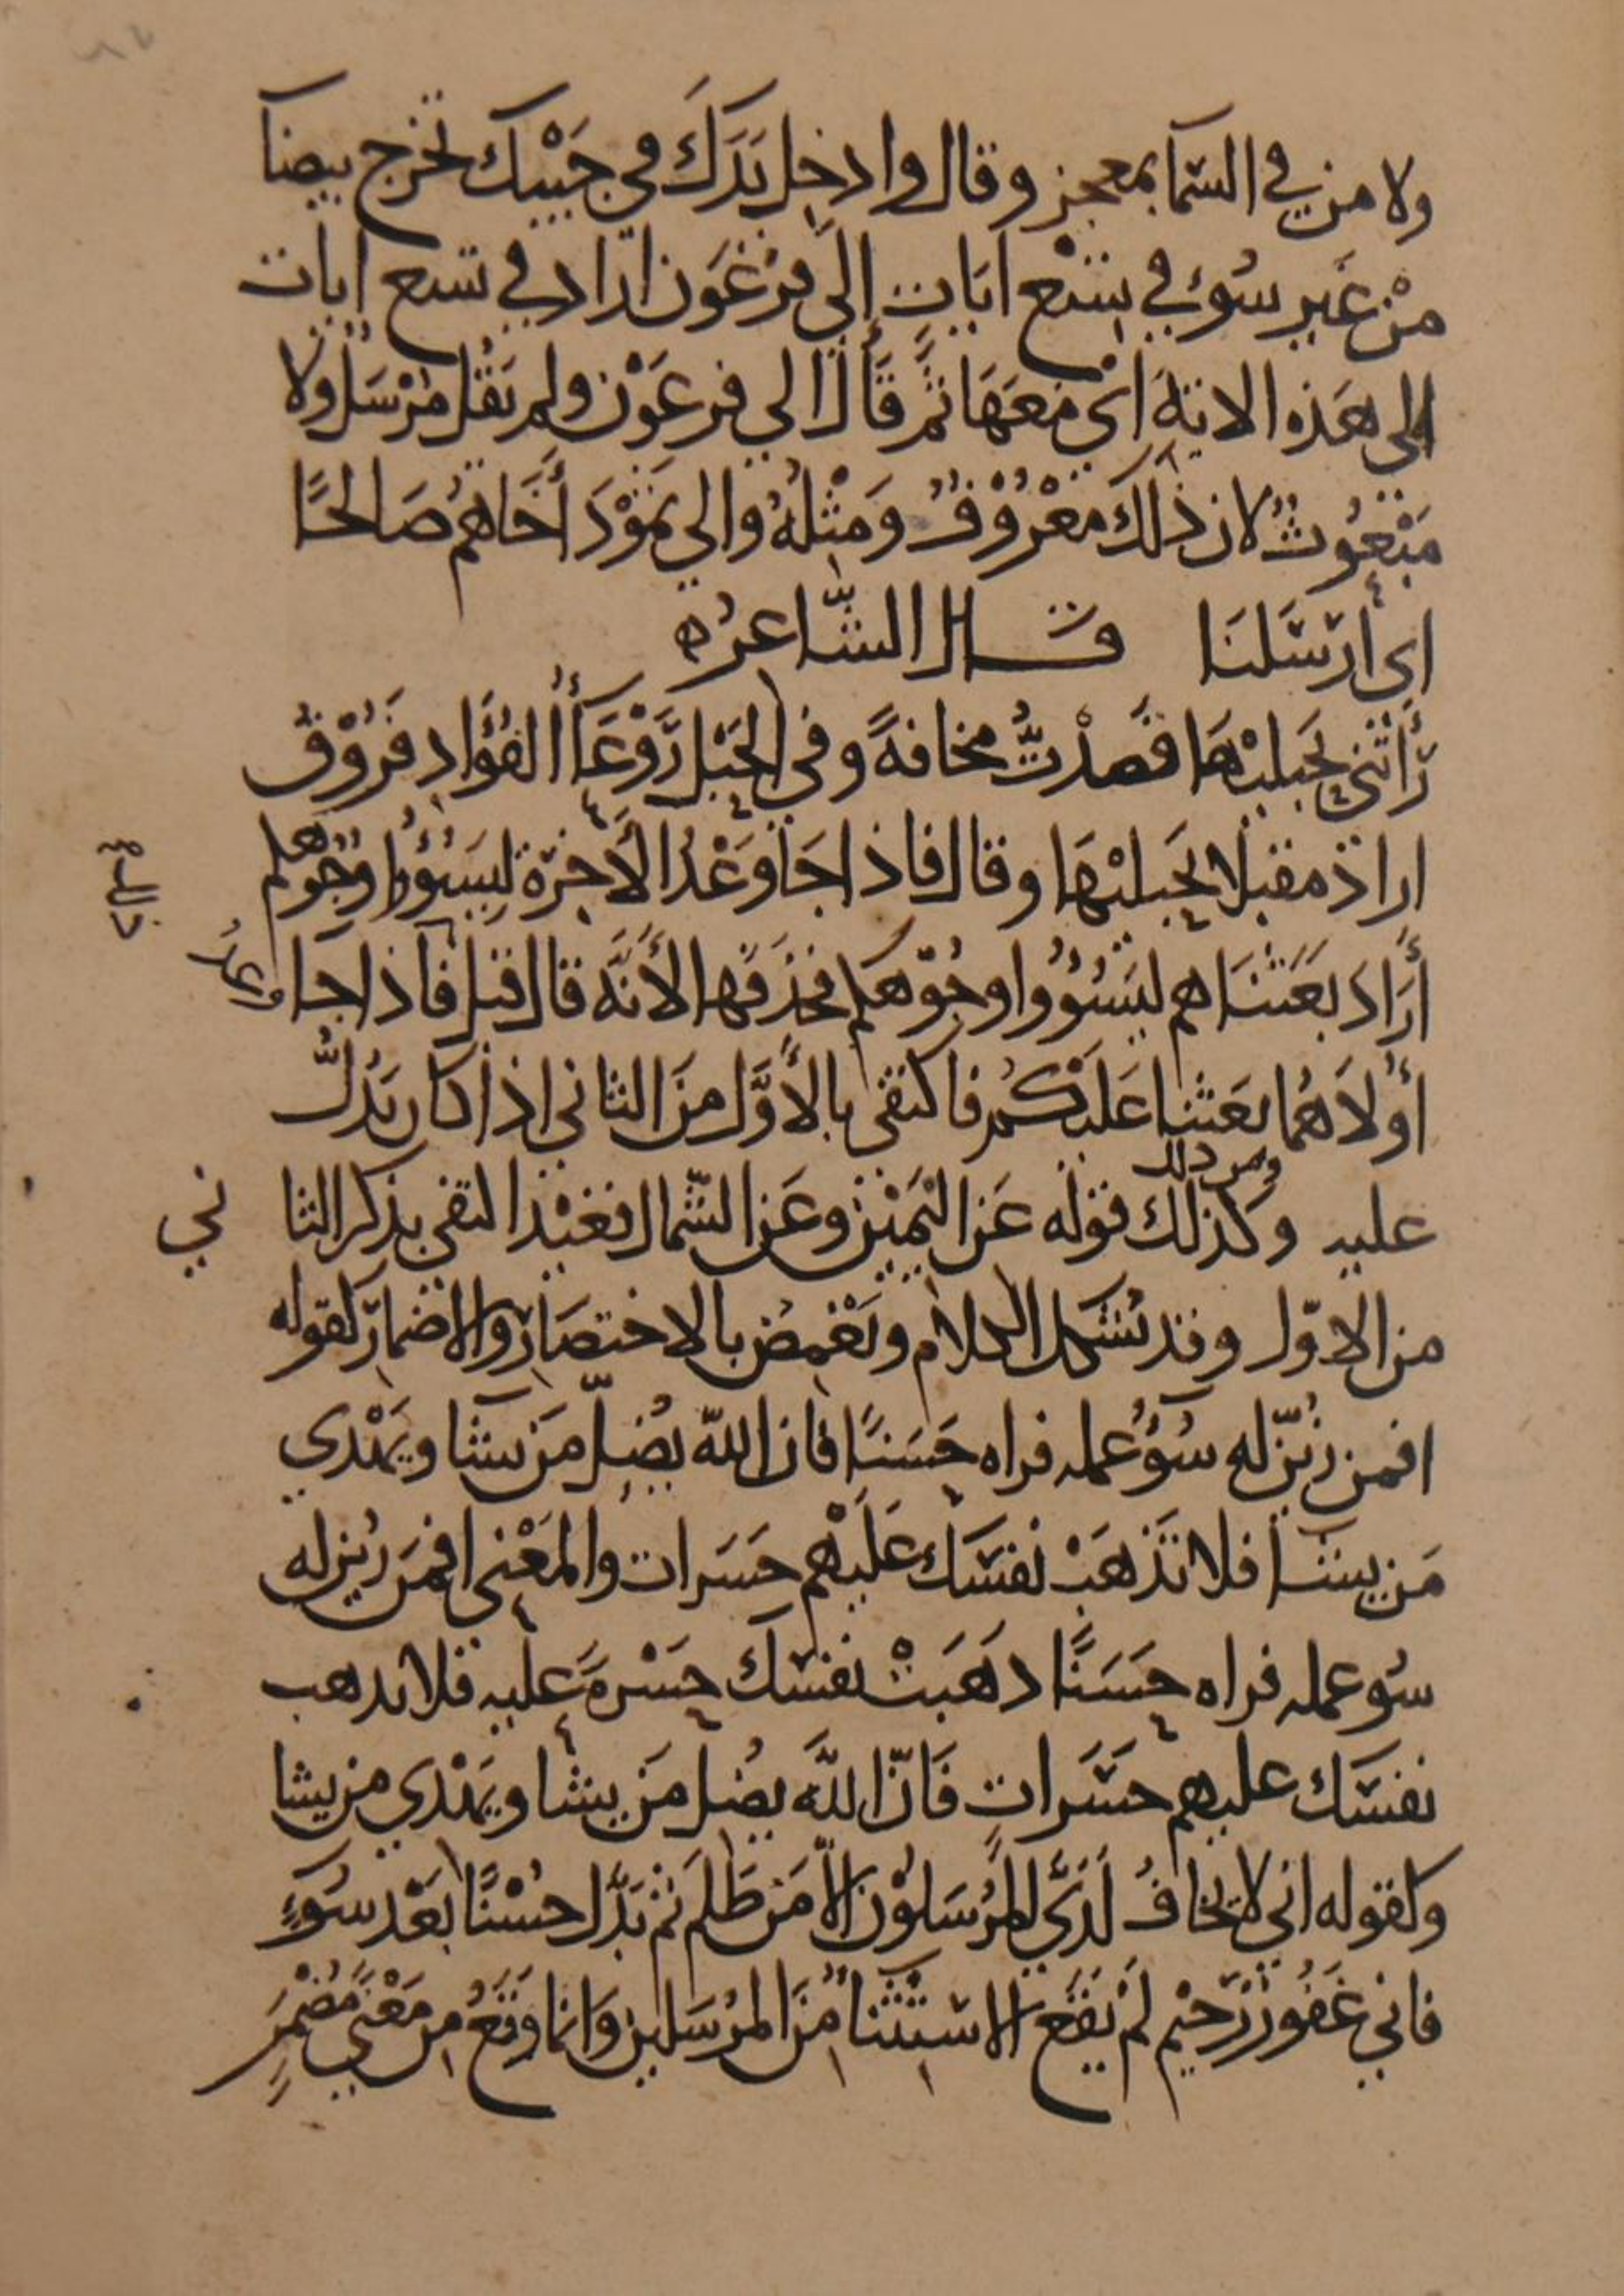 ولا من في السما بمعجز وقال وادخل يَدَكَ في جَيْبك تخرج بيضا
مِنْ غَير سُوء في تِسْع ايَات إلى فِرْعَوْن ارَاد في تسع ايات
إلى هَذه الايَة اي مَعَهَا ثُم قَالَ الي فرعَوْن ولم يَقُل مُرْسَل ولا
مَبْعُوثُ لان ذلك مَعْرُوْفُ وَمِثْلهُ والي ثَمُوْدَ أَخَاهُم صَالحًا
اي أرسَلنَا قــال الشّاعرُ ه
رَأَتْني بحَبليْهَا فَصدَّتْ مخافةً وفي الحَبْل رَوْعَاأُ الفُؤَادِ فَرُوْقُ
اراد مقبلا بحَبليْهَا وقال فاذا جَا وَعْدُ الأَخِرَة ليَسُؤوا وُجُوْهكم
أرَادَ بَعَثنَاهم ليَسُوُوا وجُوْهكم فحَذفَها لأَنَّه قال قبل فاذا جا وَعْدُ
أوْلَاهُمَا بَعَثْنا عَليْكُم فاكتفى بالأَوَّل مِنَ الثاني اذا كان يَدُلُّ
ومن ذلك
عليه وكذلك قوله عَن اليَمِيْن وعَن الشّمال قعَيْد اكتفى بذكر الثاني
من الاوّل وقد يُشْكِل الكلام ويَغْمِضُ بالاختصَار والاضمار كقوله
افمن زيّن له سُوُء عمله فراه حَسَنًا فان الله يُضِلّ مَن يشا ويَهْدي
مَن يشا فلا تَذهَبْ نفسَك عَلَيْهم حَسَرات والمَعْنى افمَن زُين له
سُو عمله فراه حَسَنًا ذهَبَتْ نفسَك حَسْرةً عليه فلا تذهب
نفسَك عليهم حسَرات فَانّ اللّه يضل مَن يشا ويَهْدي من يشا
وكقوله اني لا يخافُ لَدَيَّ المُرْسَلوْن الّا مَن ظَلَم ثم بَدَّل حُسْنًا بَعْد سُوَءٍ
فاني غَفُورٌ رَّحيْم لَمْ يَقَع الاسْتثْنَأُ مِنَ المرُسَلين وَانما وَقَعُ مِن مَعْنًى مُضْمَرٍ